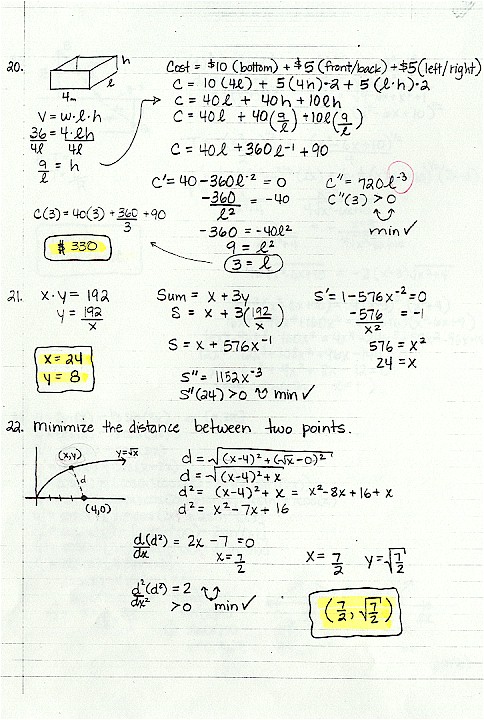 20.
h
l
4m
V = w·l·h
36 = 4·lh
4l 4l
9/l = h
Cost = $10 (bottom) + $5 (front/back) + $5 (left/right)
C = 10(4l) + 5(4h)·2 + 5(l·h)·2
C = 40l + 40h + 10lh
C = 40l + 40(9/l) + 10l(9/l)
C = 40l + 360l⁻¹ + 90
C' = 40 - 360l⁻² = 0
-360/l² = -40
-360 = -40l²
9 = l²
3 = l
C'' = 720l⁻³
C''(3) > 0
min ✓
C(3) = 40(3) + 360/3 + 90
$ 330
21.
x·y = 192
y = 192/x
x = 24
y = 8
Sum = x + 3y
S = x + 3(192/x)
S = x + 576x⁻¹
S'' = 1152x⁻³
S''(24) > 0 min ✓
S' = 1 - 576x⁻² = 0
-576/x² = -1
576 = x²
24 = x
22. minimize the distance between two points.
(x,y)
y=√x
d
(4,0)
d = √((x-4)² + (√x-0)²)
d = √((x-4)² + x)
d² = (x-4)² + x = x² - 8x + 16 + x
d² = x² - 7x + 16
d/dx (d²) = 2x - 7 = 0
x = 7/2
x = 7/2 y = √(7/2)
d²/dx² (d²) = 2
> 0 min ✓
(7/2, √(7/2))